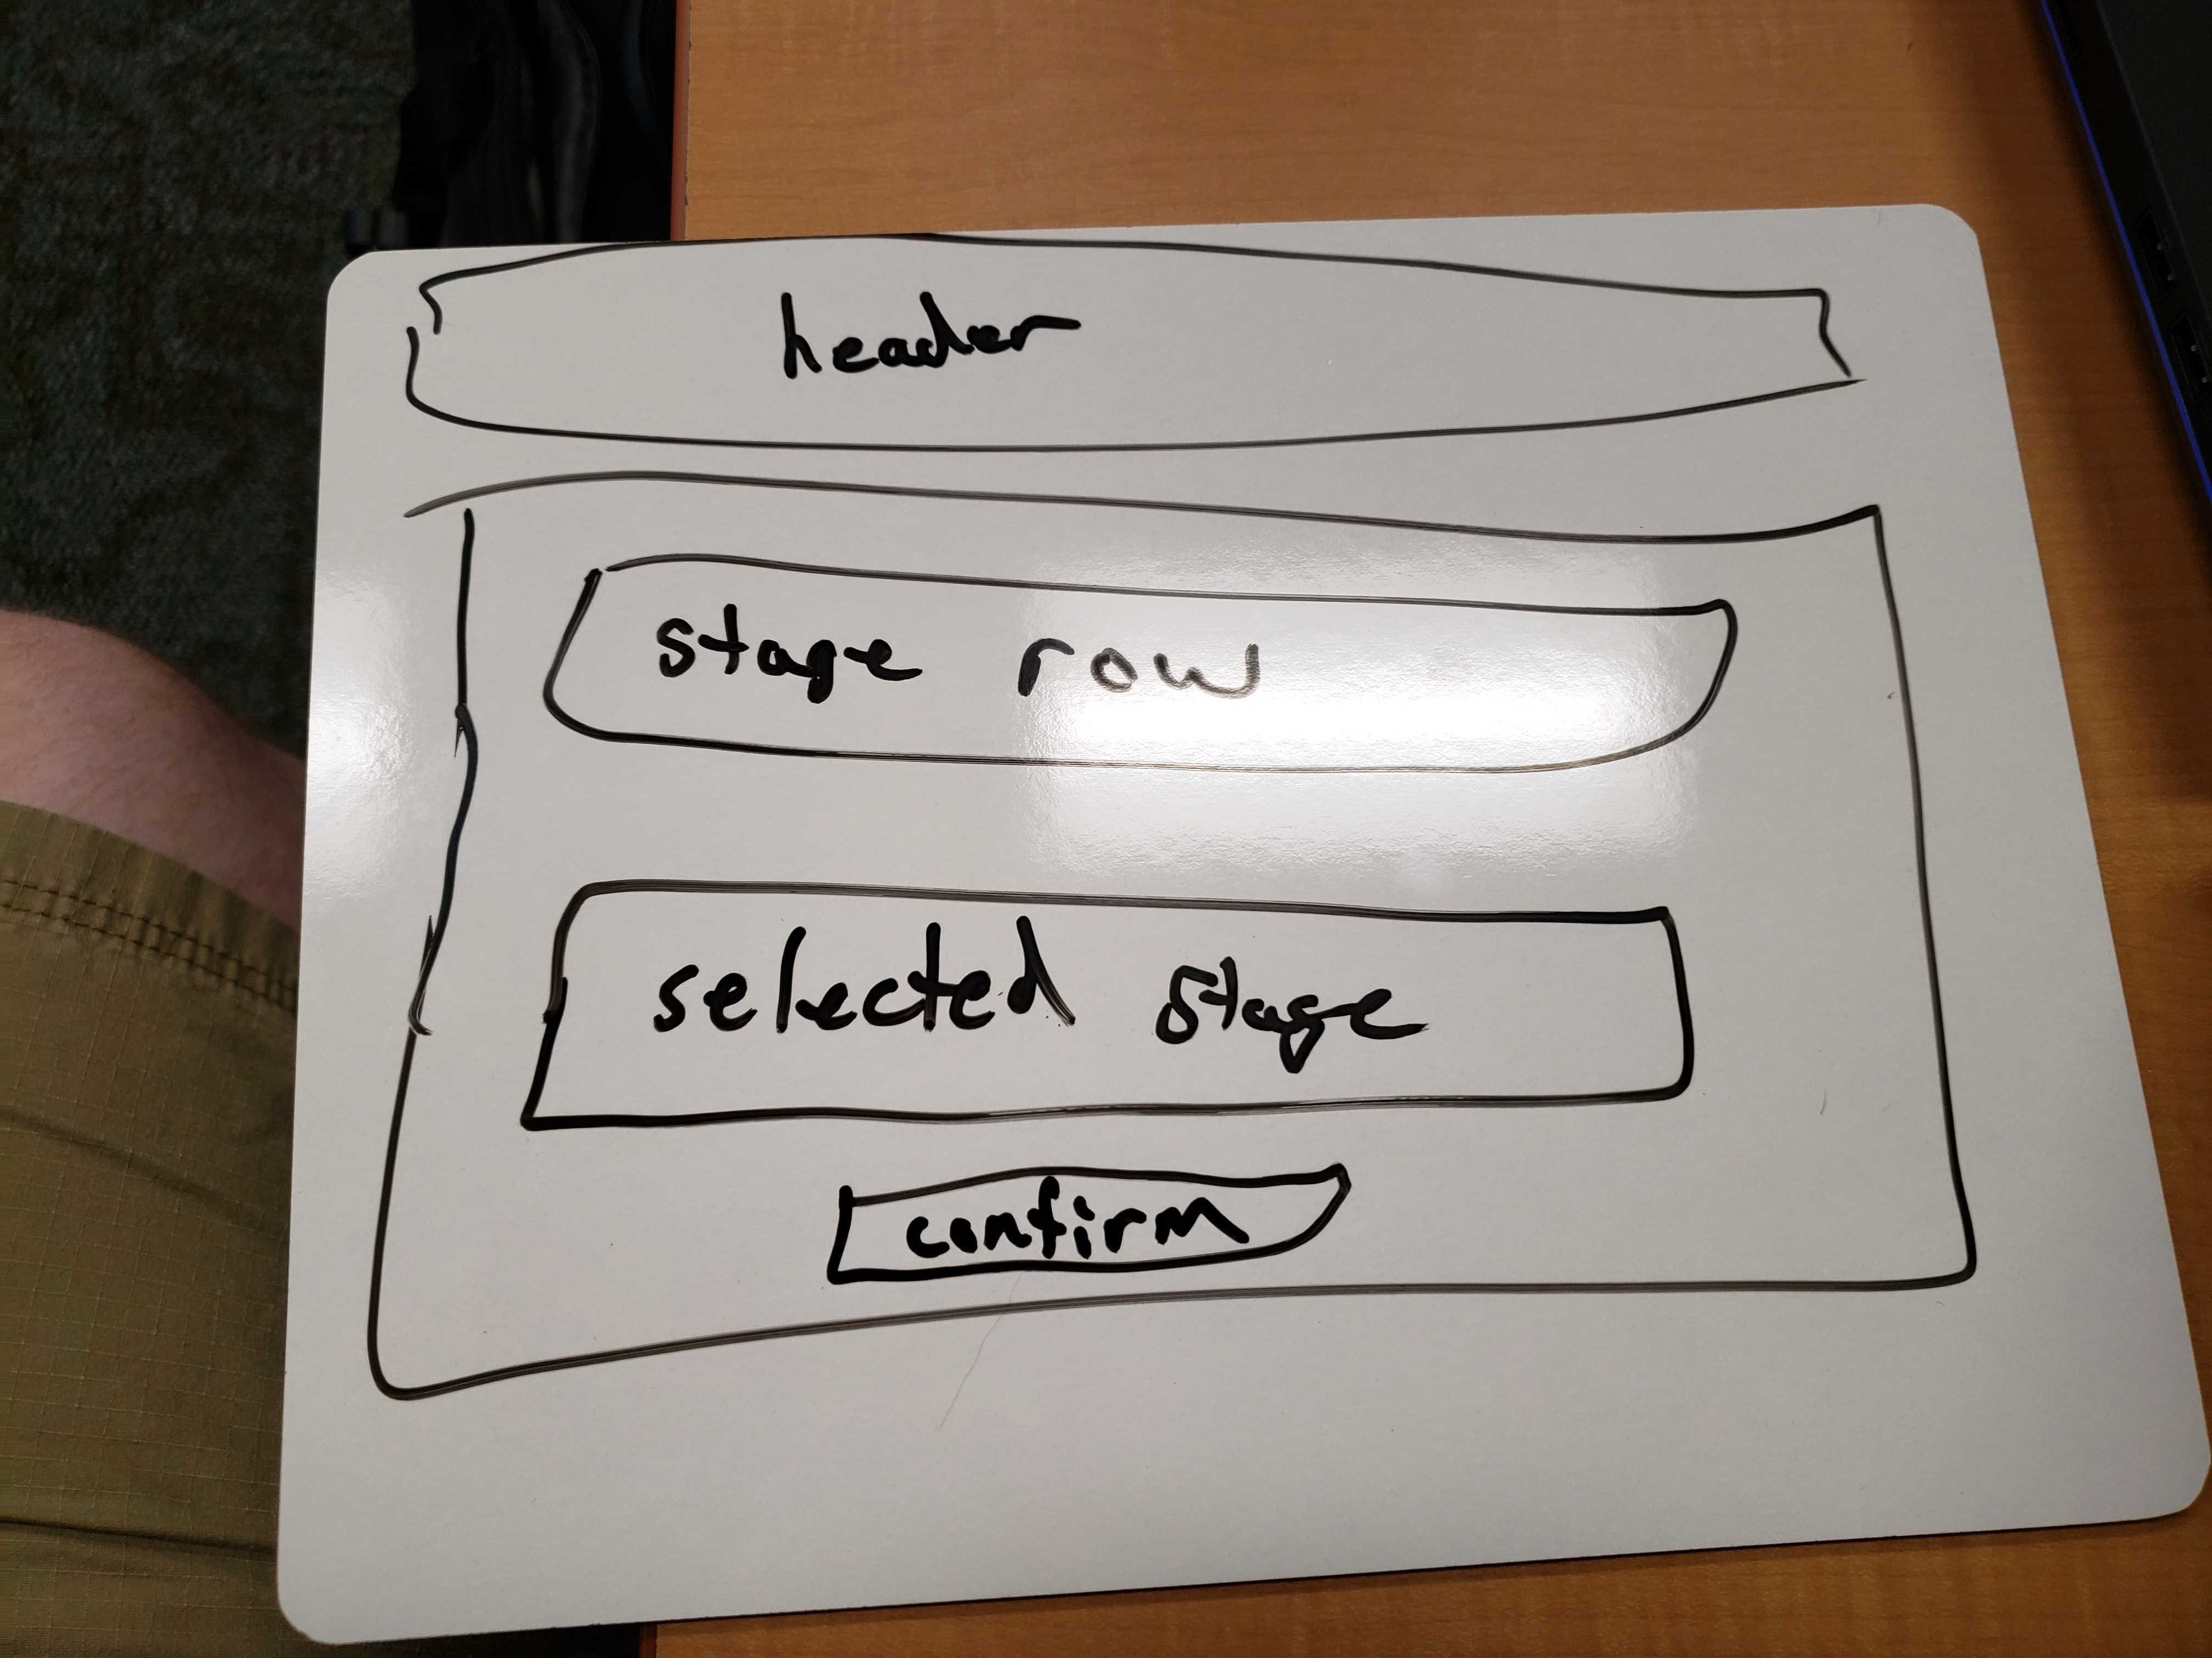 header
stage row
selected stage
confirm